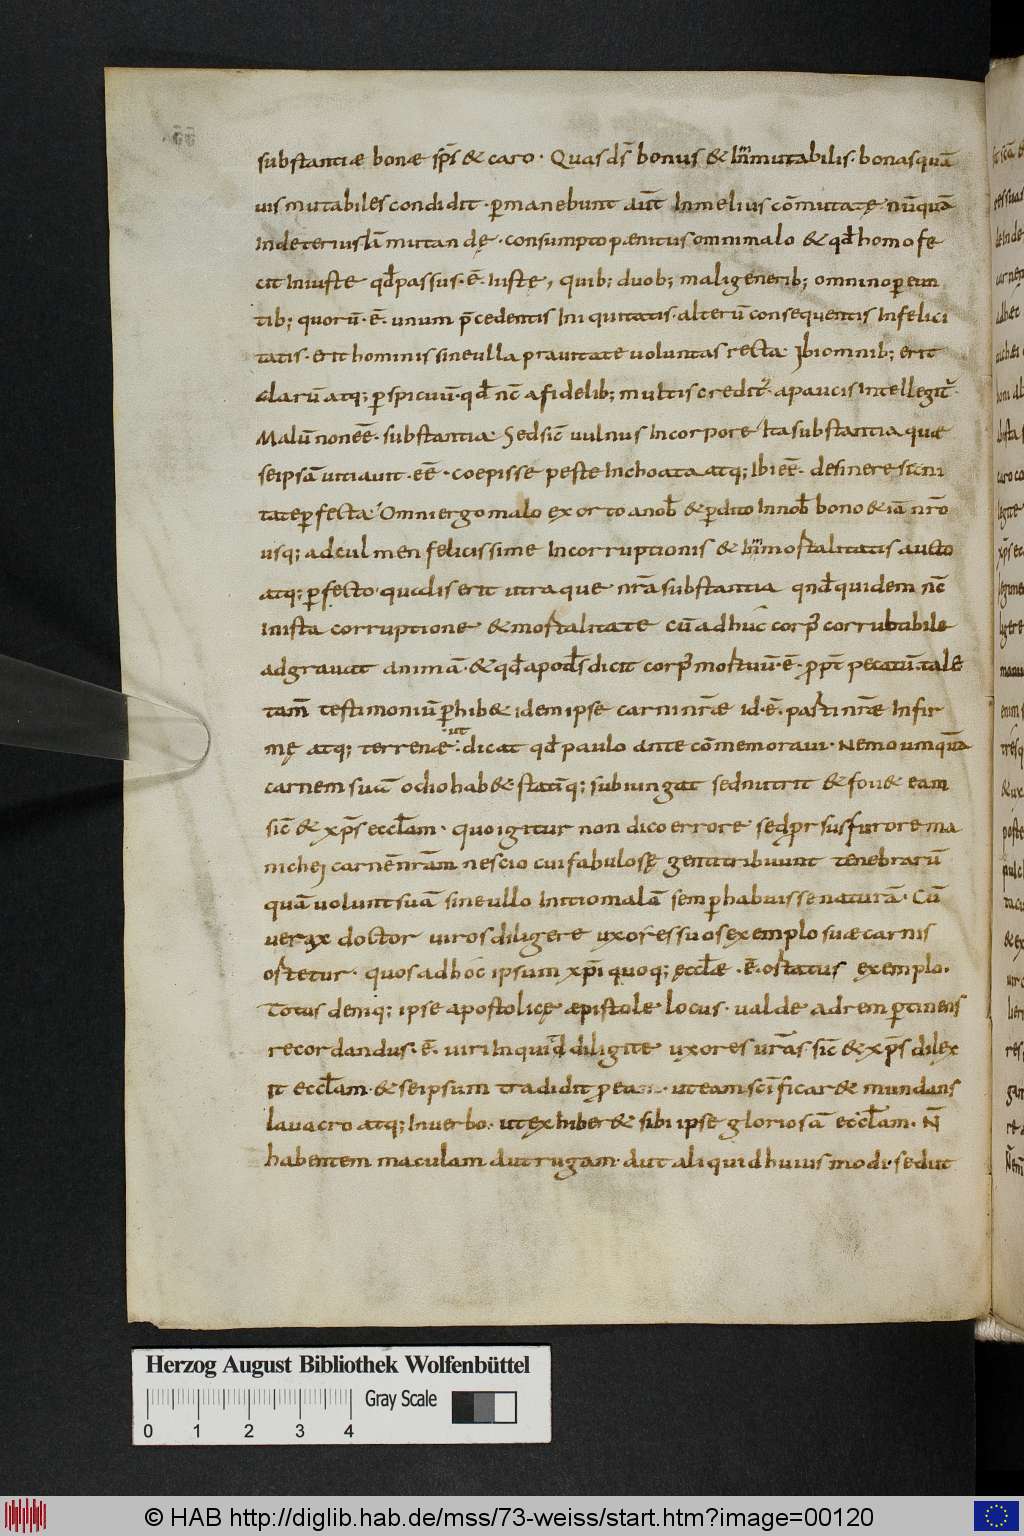 substantiæ bonæ sp̄s & caro · Quas ds̄ bonus & Inmutabilis · bonas quā
uis mutabiles condidit · ꝑmanebunt aut̄ In melius cōmutatę nūquā
In deterius iā mutandę · consumpto pænitus omni malo & qđ homo fe
cit Iniuste qđ passus · ē · Iuste, quib; duob; mali generib; omnino ꝑeun
tib; quorū · ē · unum p̄cedentis Iniquitatis · alterū consequentis Infelici
tatis · erit hominis sine ulla prauitate uoluntas recta Ibi omnib; erit
clarū atq; ꝑspicuū · qđ nc̄ a fidelib; multis creditur · a paucis Intellegit̄ ·
Malū non eē · substantiā Sed sic̄ uulnus In corpore Ita substantia quæ
seipsā uitiauit · eē · coepisse peste Inchoata atq; Ibi eē · desinere sani
tate ꝑfecta Omni ergo malo exorto a nob̄ & ꝑdito In nob̄ bono & iā nr̄o
usq; ad culmen felicissime Incorruptionis & Inmortalitatis aucto
atq; ꝑfecto · qualis erit utraque nr̄a substantia qn̄d quidem nc̄
In ista corruptione & mortalitate cū adhuc corp̄ corruptibile
adgrauat animā · & qđ apo͞ls dicit corp̄ mortuū · ē · ꝓpt̄ pecatū · tale
tam̄ testimoniū ꝑhib& idem ipse carni nr̄æ id · ē · parti nr̄æ Infir
mę atq; terrenæ · ut dicat qđ paulo ante cōmemoraui · Nemo umquā
carnem suā odio hab& · statīq; subiungat sed nutrit & fou& eam
sic̄ & xp̄s eccl̄am · quo igitur non dico errore sed prorsus furore ma
nichei carnē nr̄am nescio cui fabulosę genti tribuunt tenebrarū
quā uolunt suā sine ullo Initio malā semꝑ habuisse naturā · Cū
uerax doctor uiros diligere uxores suos exemplo suæ carnis
ortetur · quos ad hoc ipsum xp̄i quoq; ęccl̄æ · ē · ortatus exemplo ·
Totus deniq; ipse apostolicę æpistole locus · ualde ad rem ꝑtinens
recordandus · ē · uiri Inquid diligite uxores ur̄as · sic̄ & xp̄s dilex
it eccl̄am · & seipsum tradidit ꝓ ea · ut eam sc̄ificar& mundans
lauacro atq; In uerbo · ut exhiber& sibi ipse gloriosā eccl̄am · N̄
habentem maculam aut rugam · aut aliquid huiusmodi · sed ut
Herzog August Bibliothek Wolfenbüttel
Gray Scale
0 1 2 3 4
© HAB http://diglib.hab.de/mss/73-weiss/start.htm?image=00120